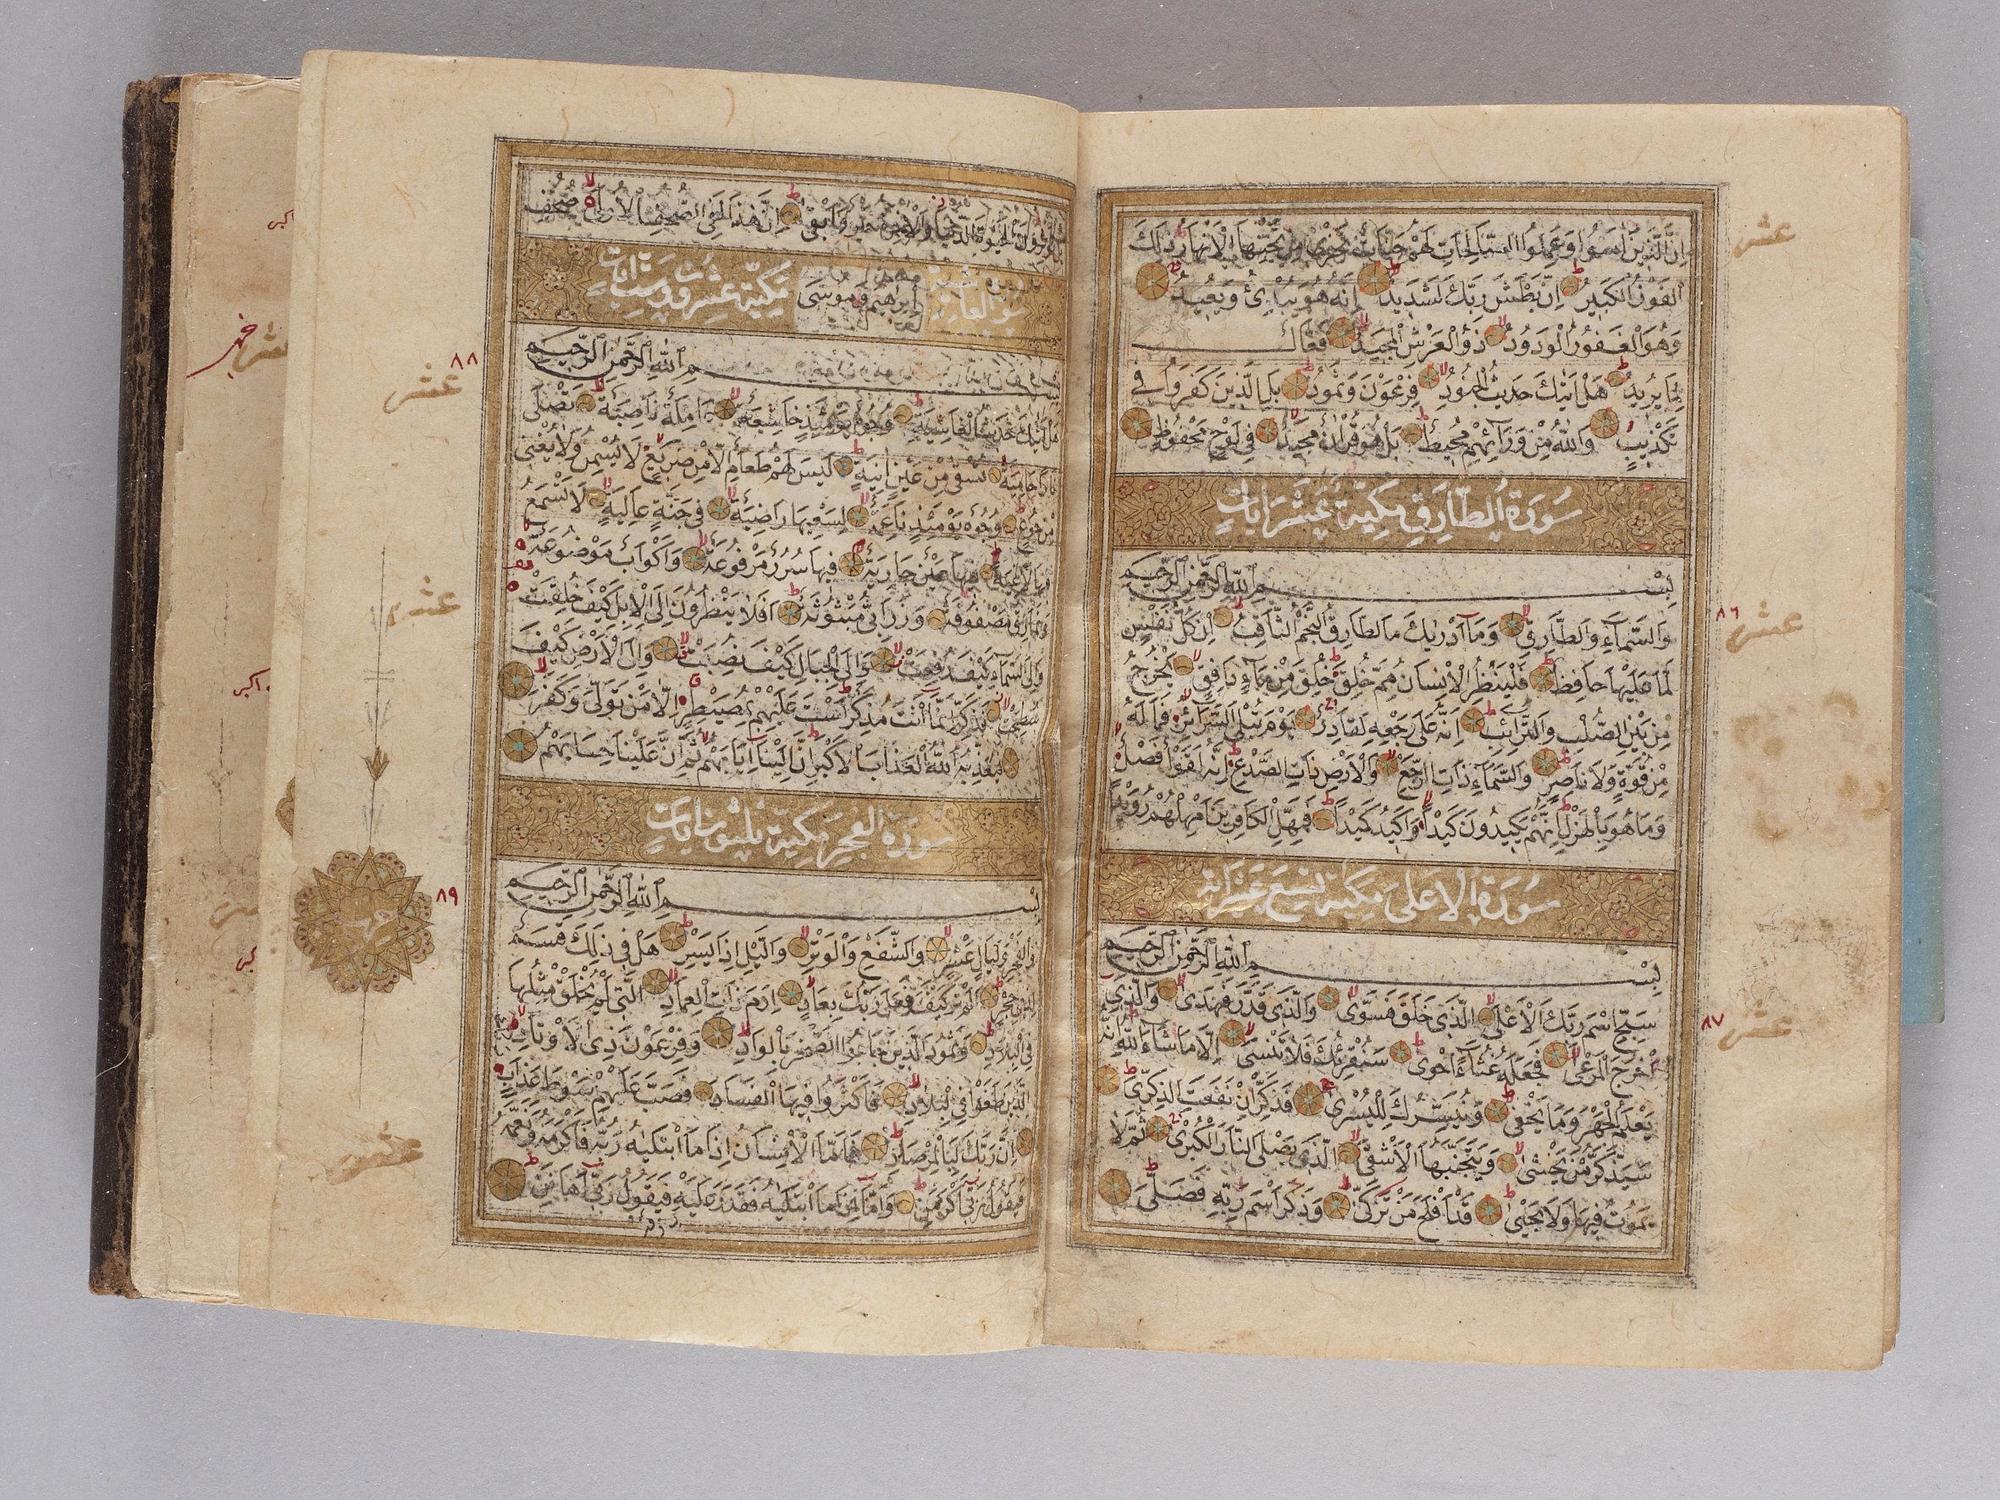 عشر
اِنَّ الَّذينَ اٰمَنُوا وَعَمِلُوا الصَّالِحَاتِ لَهُمْ جَنَّاتٌ تَجْرى مِنْ تَحْتِهَا الْاَنْهَارُ ذٰلِكَ
الْفَوْزُ الْكَبيرُ اِنَّ بَطْشَ رَبِّكَ لَشَديدٌ اِنَّهُ هُوَ يُبْدِئُ وَيُعيدُ
وَهُوَ الْغَفُورُ الْوَدُودُ ذُو الْعَرْشِ الْمَجيدُ فَعَّالٌ
لِمَا يُريدُ هَلْ اَتٰيكَ حَديثُ الْجُنُودِ فِرْعَوْنَ وَثَمُودَ بَلِ الَّذينَ كَفَرُوا فى
تَكْذيبٍ وَاللّٰهُ مِنْ وَرَائِهِمْ مُحيطٌ بَلْ هُوَ قُرْاٰنٌ مَجيدٌ فى لَوْحٍ مَحْفُوظٍ
سُورَةُ الطَّارِقِ مَكِيَّة عَشَرَ اٰيَاتٍ
بِسْمِ اللّٰهِ الرَّحْمٰنِ الرَّحيمِ
٨٦
عشر
وَالسَّمَاءِ وَالطَّارِقِ وَمَا اَدْرٰيكَ مَا الطَّارِقُ النَّجْمُ الثَّاقِبُ اِنْ كُلُّ نَفْسٍ
لَمَّا عَلَيْهَا حَافِظٌ فَلْيَنْظُرِ الْاِنْسَانُ مِمَّ خُلِقَ خُلِقَ مِنْ مَاءٍ دَافِقٍ يَخْرُجُ
مِنْ بَيْنِ الصُّلْبِ وَالتَّرَائِبِ اِنَّهُ عَلٰى رَجْعِهِ لَقَادِرٌ يَوْمَ تُبْلَى السَّرَائِرُ فَمَا لَهُ
مِنْ قُوَّةٍ وَلَا نَاصِرٍ وَالسَّمَاءِ ذَاتِ الرَّجْعِ وَالْاَرْضِ ذَاتِ الصَّدْعِ اِنَّهُ لَقَوْلٌ فَصْلٌ
وَمَا هُوَ بِالْهَزْلِ اِنَّهُمْ يَكيدُونَ كَيْدًا وَاَكيدُ كَيْدًا فَمَهِّلِ الْكَافِرينَ اَمْهِلْهُمْ رُوَيْدًا
سُورَةُ الْاَعْلٰى مَكِيَّة تِسْعَ عَشَرَ اٰيَة
بِسْمِ اللّٰهِ الرَّحْمٰنِ الرَّحيمِ
سَبِّحِ اسْمَ رَبِّكَ الْاَعْلٰى الَّذى خَلَقَ فَسَوّٰى وَالَّذى قَدَّرَ فَهَدٰى وَالَّذى
٨٧
عشر
اَخْرَجَ الْمَرْعٰى فَجَعَلَهُ غُثَاءً اَحْوٰى سَنُقْرِئُكَ فَلَا تَنْسٰى اِلَّا مَا شَاءَ اللّٰهُ اِنَّهُ
يَعْلَمُ الْجَهْرَ وَمَا يَخْفٰى وَنُيَسِّرُكَ لِلْيُسْرٰى فَذَكِّرْ اِنْ نَفَعَتِ الذِّكْرٰى
سَيَذَّكَّرُ مَنْ يَخْشٰى وَيَتَجَنَّبُهَا الْاَشْقٰى الَّذى يَصْلَى النَّارَ الْكُبْرٰى ثُمَّ لَا
يَمُوتُ فيهَا وَلَا يَحْيٰى قَدْ اَفْلَحَ مَنْ تَزَكّٰى وَذَكَرَ اسْمَ رَبِّهِ فَصَلّٰى
الْحَيٰوةَ الدُّنْيَا وَالْاٰخِرَةُ خَيْرٌ وَاَبْقٰى اِنَّ هٰذَا لَفِى الصُّحُفِ الْاُولٰى صُحُفِ
اِبْرٰهيمَ وَمُوسٰى
سورة الغاشية مَكِيَّة عِشْرُونَ وَسِتُّ اٰيَاتٍ
بِسْمِ اللّٰهِ الرَّحْمٰنِ الرَّحيمِ
٨٨
عشر
هَلْ اَتٰيكَ حَديثُ الْغَاشِيَةِ وُجُوهٌ يَوْمَئِذٍ خَاشِعَةٌ عَامِلَةٌ نَاصِبَةٌ تَصْلٰى
نَارًا حَامِيَةً تُسْقٰى مِنْ عَيْنٍ اٰنِيَةٍ لَيْسَ لَهُمْ طَعَامٌ اِلَّا مِنْ ضَريعٍ لَا يُسْمِنُ وَلَا يُغْنى
مِنْ جُوعٍ وُجُوهٌ يَوْمَئِذٍ نَاعِمَةٌ لِسَعْيِهَا رَاضِيَةٌ فى جَنَّةٍ عَالِيَةٍ لَا تَسْمَعُ
فيهَا لَاغِيَةً فيهَا عَيْنٌ جَارِيَةٌ فيهَا سُرُرٌ مَرْفُوعَةٌ وَاَكْوَابٌ مَوْضُوعَةٌ
وَنَمَارِقُ مَصْفُوفَةٌ وَزَرَابِىُّ مَبْثُوثَةٌ اَفَلَا يَنْظُرُونَ اِلَى الْاِبِلِ كَيْفَ خُلِقَتْ
عشر
وَاِلَى السَّمَاءِ كَيْفَ رُفِعَتْ وَاِلَى الْجِبَالِ كَيْفَ نُصِبَتْ وَاِلَى الْاَرْضِ كَيْفَ
سُطِحَتْ فَذَكِّرْ اِنَّمَا اَنْتَ مُذَكِّرٌ لَسْتَ عَلَيْهِمْ بِمُصَيْطِرٍ اِلَّا مَنْ تَوَلّٰى وَكَفَرَ
فَيُعَذِّبُهُ اللّٰهُ الْعَذَابَ الْاَكْبَرَ اِنَّ اِلَيْنَا اِيَابَهُمْ ثُمَّ اِنَّ عَلَيْنَا حِسَابَهُمْ
سُورَةُ الْفَجْرِ مَكِيَّة ثَلٰثُونَ اٰيَات
بِسْمِ اللّٰهِ الرَّحْمٰنِ الرَّحيمِ
٨٩
وَالْفَجْرِ وَلَيَالٍ عَشْرٍ وَالشَّفْعِ وَالْوَتْرِ وَالَّيْلِ اِذَا يَسْرِ هَلْ فى ذٰلِكَ قَسَمٌ
لِذى حِجْرٍ اَلَمْ تَرَ كَيْفَ فَعَلَ رَبُّكَ بِعَادٍ اِرَمَ ذَاتِ الْعِمَادِ الَّتى لَمْ يُخْلَقْ مِثْلُهَا
فِى الْبِلَادِ وَثَمُودَ الَّذينَ جَابُوا الصَّخْرَ بِالْوَادِ وَفِرْعَوْنَ ذِى الْاَوْتَادِ
الَّذينَ طَغَوْا فِى الْبِلَادِ فَاَكْثَرُوا فيهَا الْفَسَادَ فَصَبَّ عَلَيْهِمْ رَبُّكَ سَوْطَ عَذَابٍ
اِنَّ رَبَّكَ لَبِالْمِرْصَادِ فَاَمَّا الْاِنْسَانُ اِذَا مَا ابْتَلٰيهُ رَبُّهُ فَاَكْرَمَهُ وَنَعَّمَهُ
فَيَقُولُ رَبّى اَكْرَمَنِ وَاَمَّا اِذَا مَا ابْتَلٰيهُ فَقَدَرَ عَلَيْهِ فَيَقُولُ رَبّى اَهَانَنِ
عشر